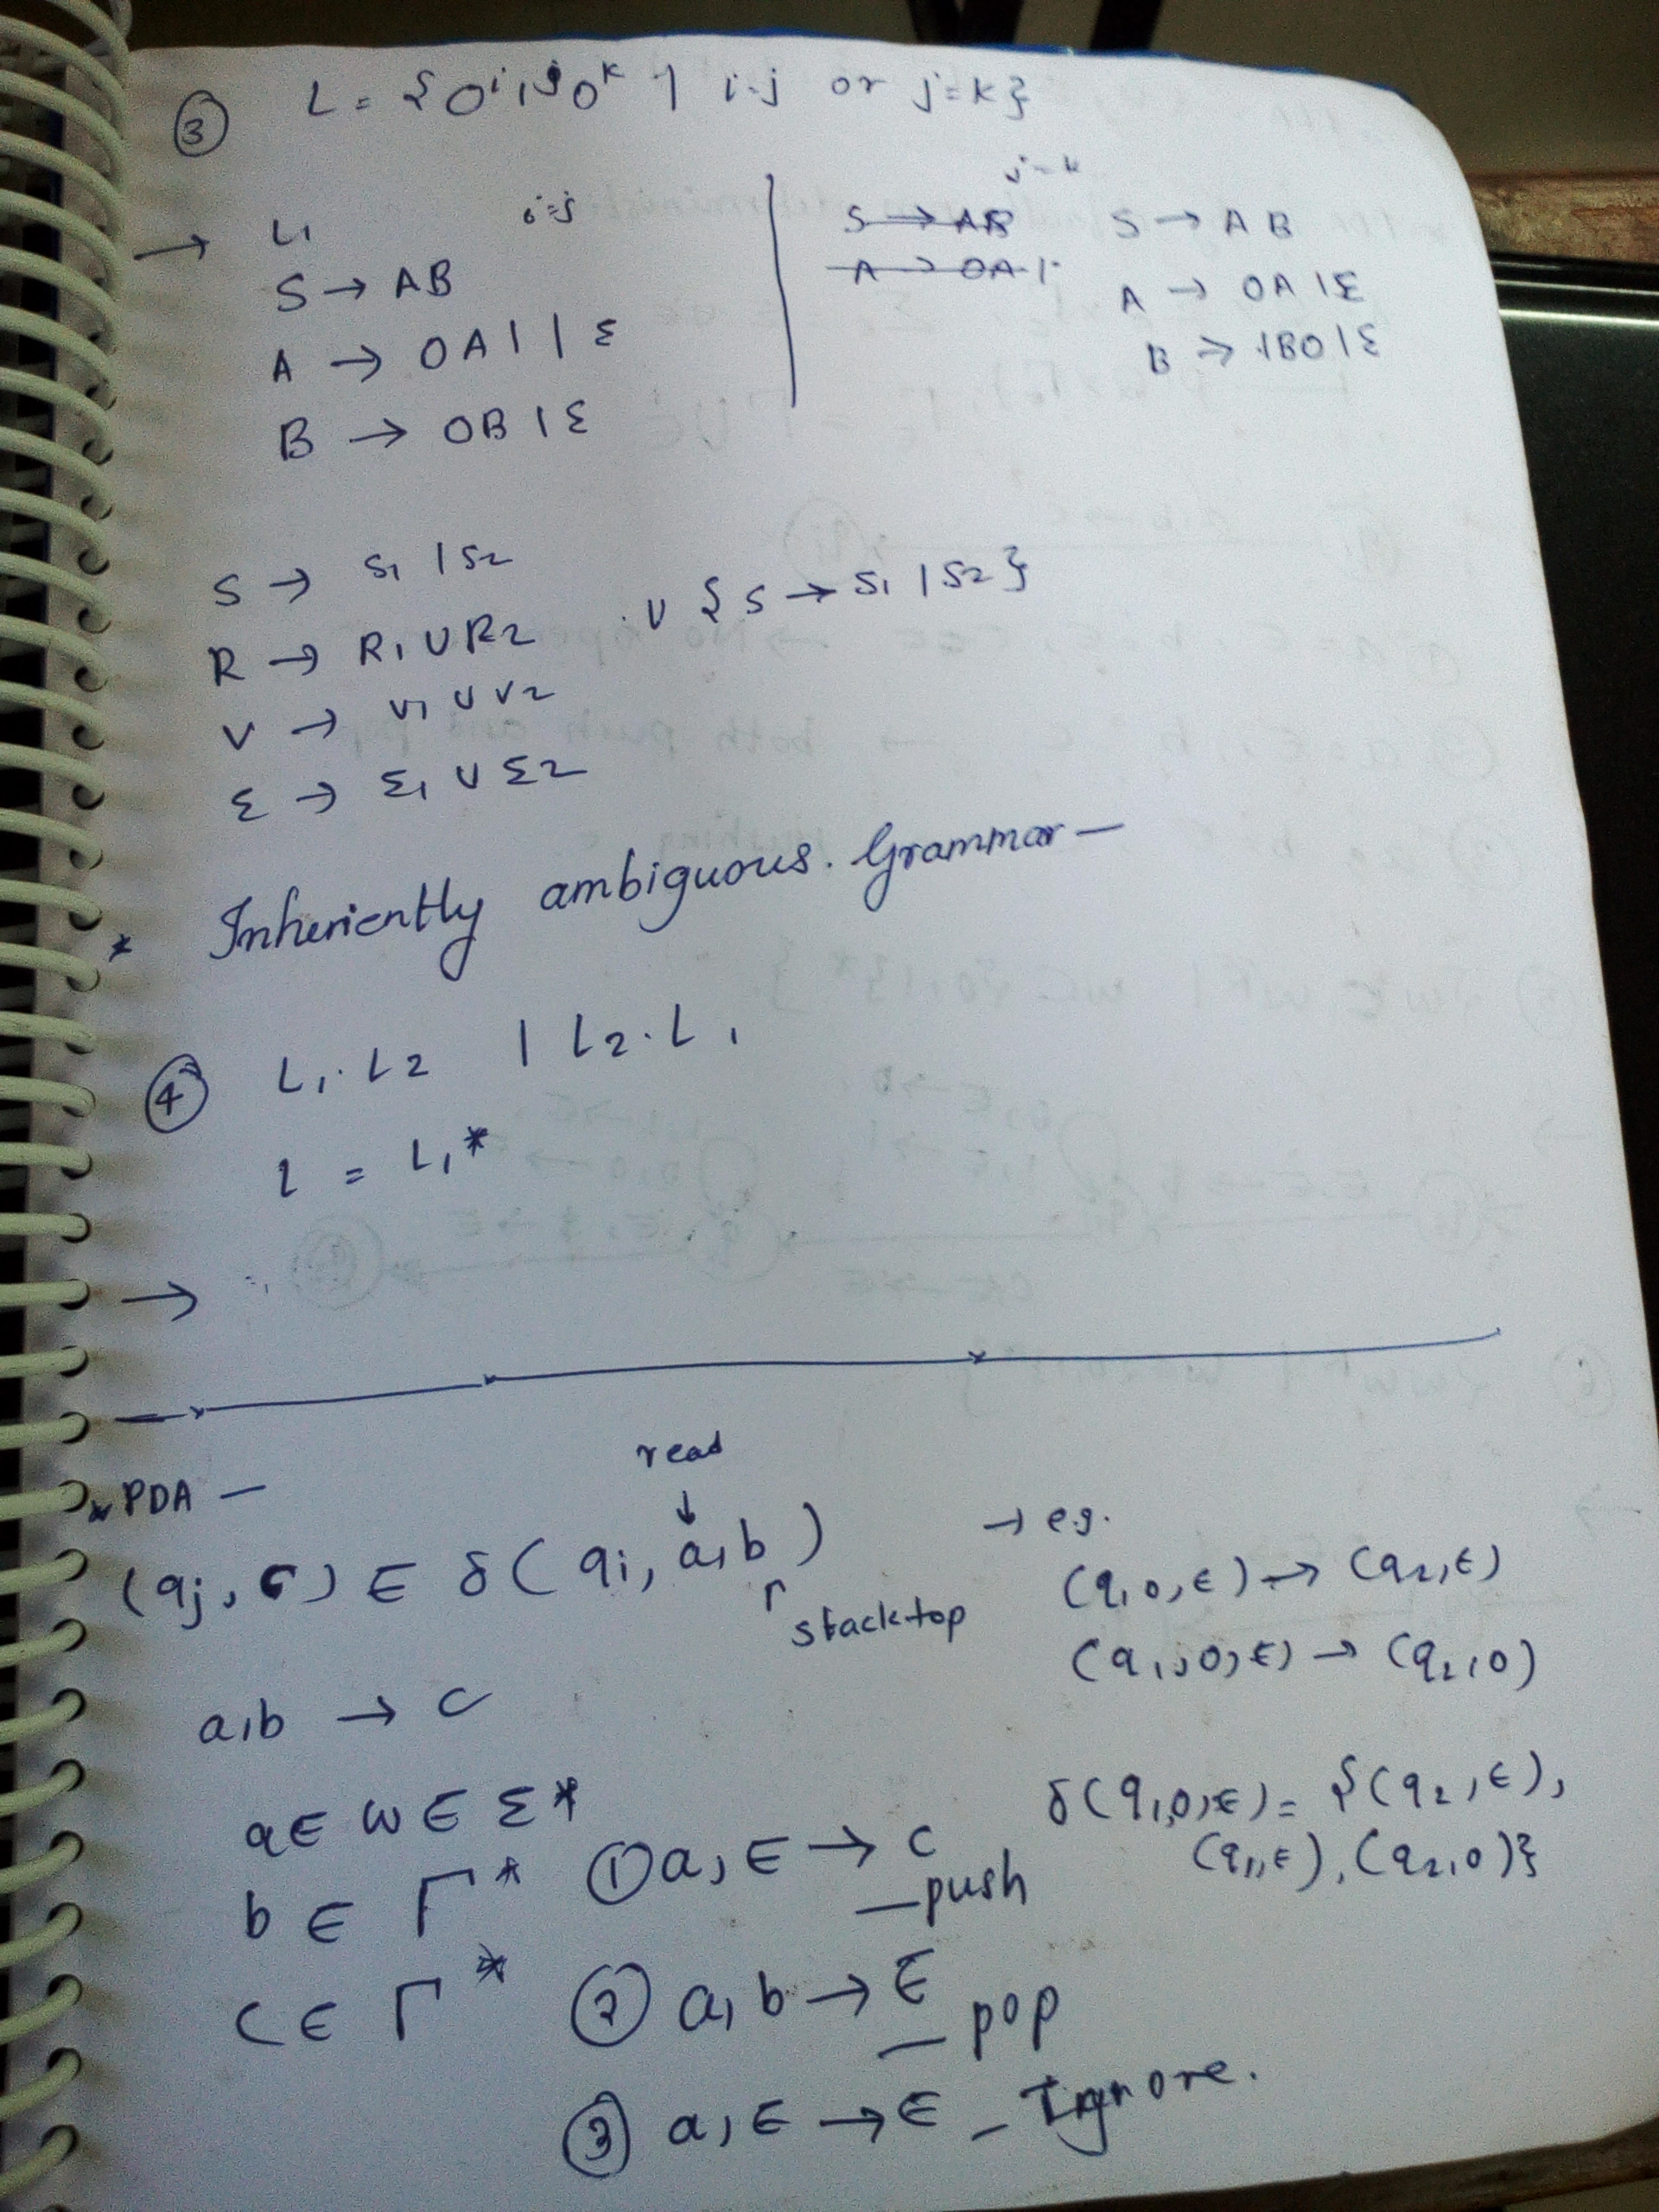 ③ L = {0ⁱ1ʲ0ᵏ | i=j or j=k}
→ L₁ i=j
S → AB
A → 0A1 | ε
B → 0B | ε
j=k
S → AB S → AB
A → 0A | A → 0A | ε
B → 1B0 | ε
S → S₁ | S₂
R → R₁ ∪ R₂ ∪ {S → S₁ | S₂}
V → V₁ ∪ V₂
Σ → Σ₁ ∪ Σ₂
* Inheriently ambiguous. Grammar —
④ L₁.L₂ | L₂.L₁
L = L₁*
→
* PDA —
read
↓
(qj, c) ∈ δ(qi, a, b)
stacktop
→ e.g.
(q₁, 0, ϵ) → (q₂, ϵ)
(q₁, 0, ϵ) → (q₂, 0)
a, b → c
a ∈ w ∈ Σ*
b ∈ Γ*
c ∈ Γ*
δ(q₁, 0, ϵ) = {(q₂, ϵ),
(q₁, ϵ), (q₂, 0)}
① a, ϵ → c
— push
② a, b → ϵ
— pop
③ a, ϵ → ϵ – Ignore.